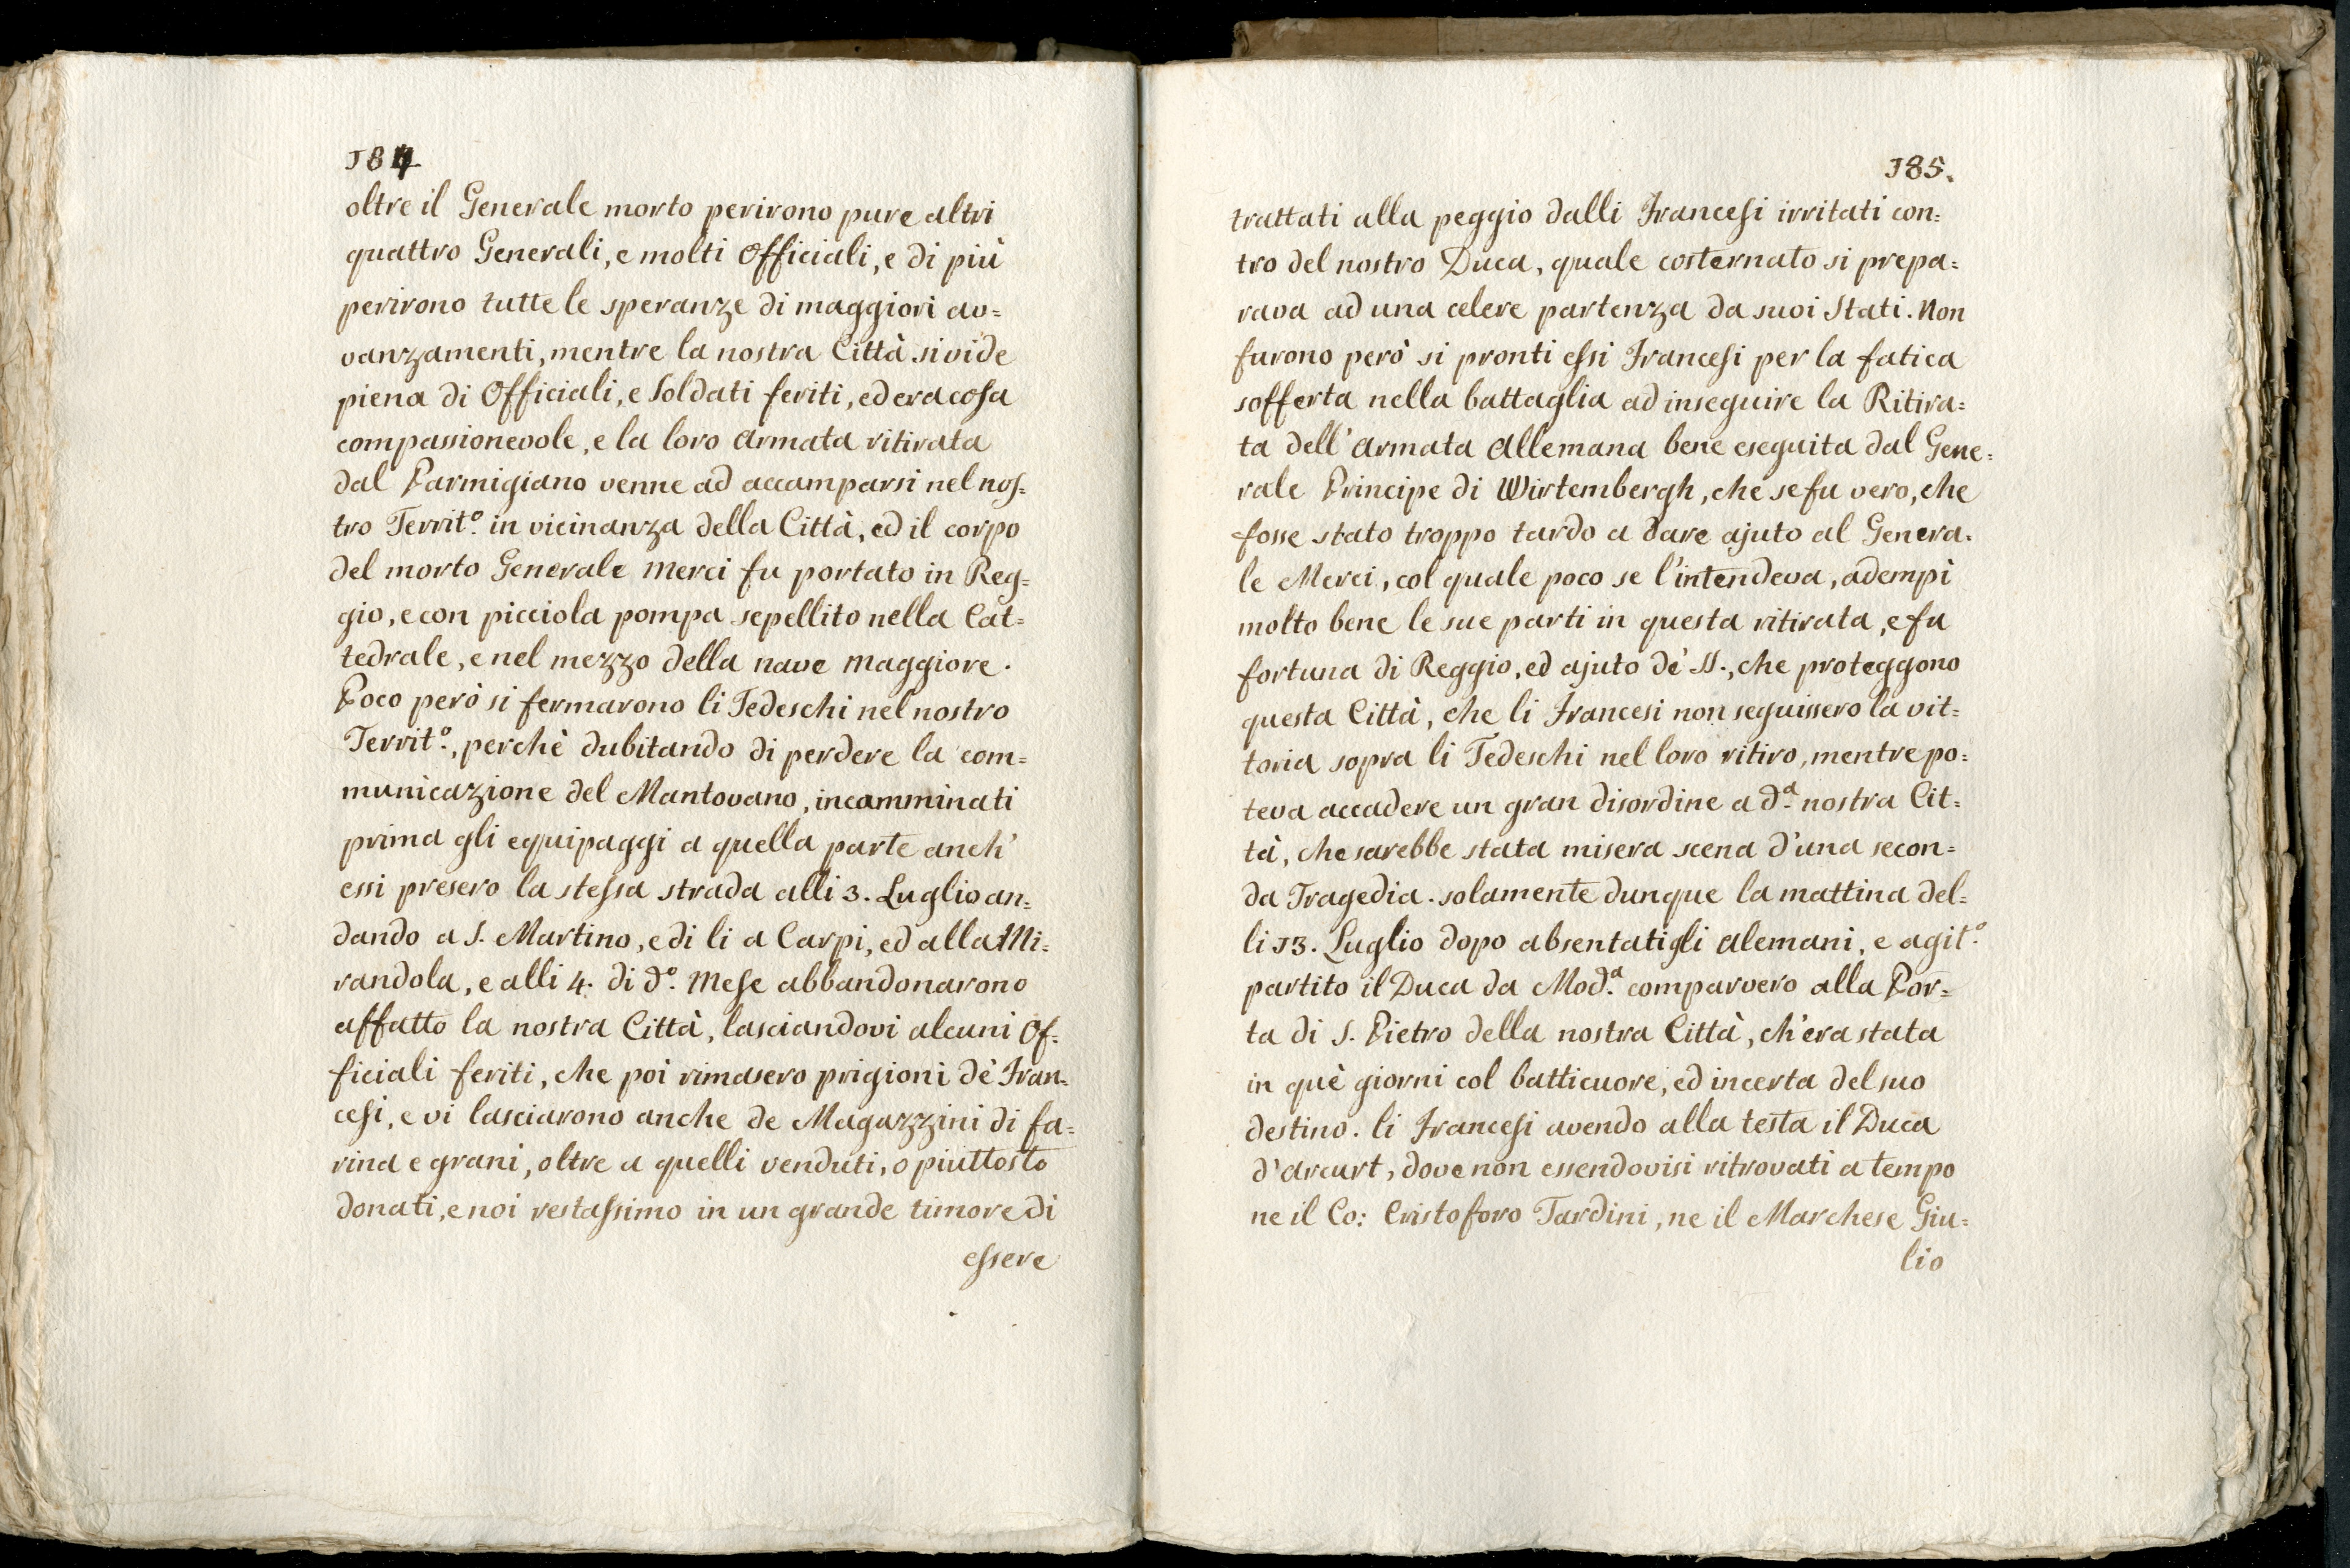 184
oltre il Generale morto perirono pure altri
quattro Generali, e molti Officiali, e di più
perirono tutte le speranze di maggiori av=
vanzamenti, mentre la nostra Città si vide
piena di Officiali, e Soldati feriti, ed era cosa
compassionevole, e la loro Armata ritirata
dal Parmigiano venne ad accamparsi nel nos=
tro Territ.º in vicinanza della Città, ed il corpo
del morto Generale Merci fu portato in Reg=
gio, e con picciola pompa sepellito nella Cat=
tedrale, e nel mezzo della nave maggiore.
Poco però si fermarono li Tedeschi nel nostro
Territ.º, perchè dubitando di perdere la com=
municazione del Mantovano, incamminati
prima gli equipaggi a quella parte anch'
essi presero la stessa strada alli 3. Luglio an=
dando a S. Martino, e di li a Carpi, ed alla Mi=
randola, e alli 4. di d.º Mese abbandonarono
affatto la nostra Città, lasciandovi alcuni Of=
ficiali feriti, che poi rimasero prigioni dè Fran=
cesi, e vi lasciarono anche de Magazzini di fa=
rina e grani, oltre a quelli venduti, o piuttosto
donati, e noi restassimo in un grande timore di
essere
185.
trattati alla peggio dalli Francesi irritati con=
tro del nostro Duca, quale costernato si prepa=
rava ad una celere partenza da suoi Stati. Non
furono però si pronti essi Francesi per la fatica
sofferta nella battaglia ad inseguire la Ritira=
ta dell'Armata Allemana bene eseguita dal Gene=
rale Principe di Wirtembergh, che se fu vero, che
fosse stato troppo tardo a dare ajuto al Genera=
le Merci, col quale poco se l'intendeva, adempì
molto bene le sue parti in questa ritirata, e fu
fortuna di Reggio, ed ajuto dè SS., che proteggono
questa Città, che li Francesi non seguissero la vit=
toria sopra li Tedeschi nel loro ritiro, mentre po=
teva accadere un gran disordine a d.ª nostra Cit=
tà, che sarebbe stata misera scena d'una secon=
da Tragedia. solamente dunque la mattina del=
li 13. Luglio dopo absentatigli Alemani, e agit.º
partito il Duca da Mod.ª comparvero alla Por=
ta di S. Pietro della nostra Città, ch'era stata
in què giorni col batticuore, ed incerta del suo
destino. li Francesi avendo alla testa il Duca
d'Arcurt, dove non essendovisi ritrovati a tempo
ne il Co: Cristoforo Tardini, ne il Marchese Giu=
lio